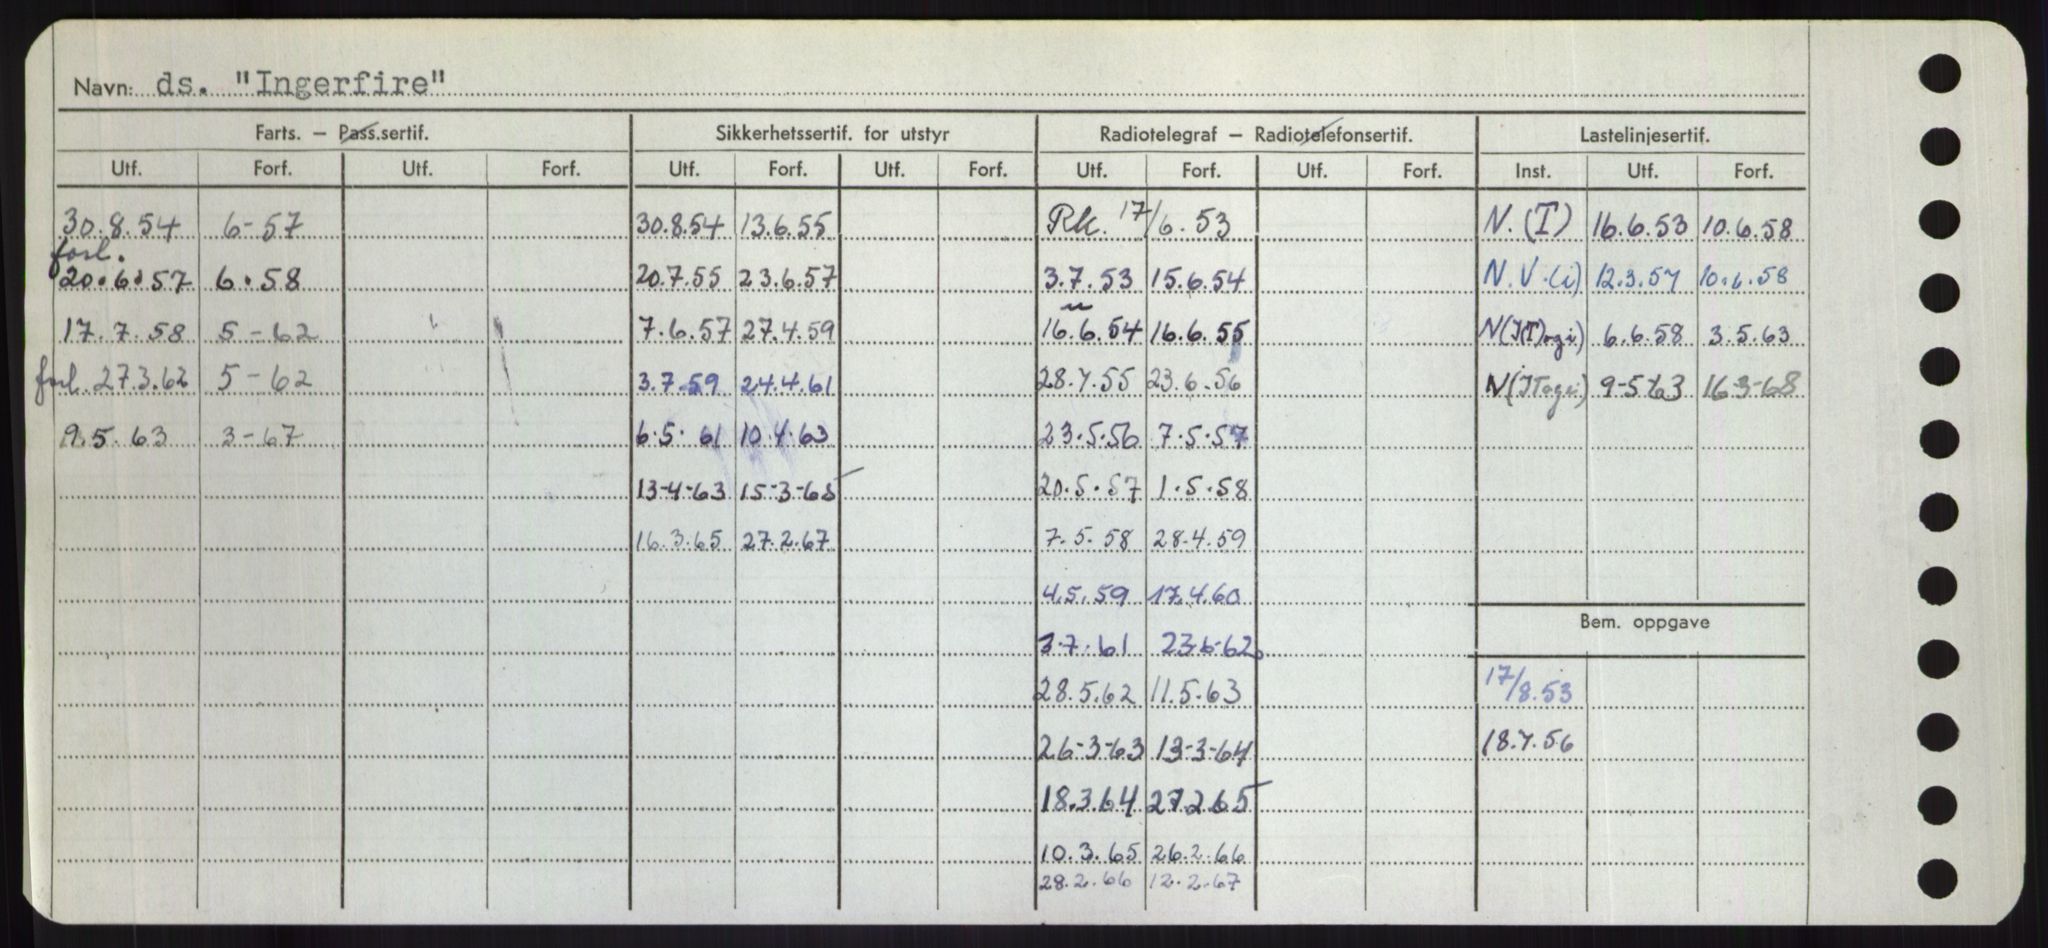 Navn: ds. "Ingerfire"
Farts. – Pass.sertif. Sikkerhetssertif. for utstyr Radiotelegraf – Radiotelefonsertif. Lastelinjesertif.
Utf. Forf. Utf. Forf. Utf. Forf. Utf. Forf. Utf. Forf. Utf. Forf. Inst. Utf. Forf.
30.8.54 6-57 30.8.54 13.6.55 Rk. 17/6.53 N.(I) 16.6.53 10.6.58
forl.
20.6.57 6.58 20.7.55 23.6.57 3.7.53 15.6.54 N.V.(i) 12.3.57 10.6.58
17.7.58 5-62 7.6.57 27.4.59 16.6.54 16.6.55 6.6.58 3.5.63
forl. 27.3.62 5-62 3.7.59 24.4.61 28.7.55 23.6.56 9-5-63 16-3-68
9.5.63 3-67 6.5.61 10.4.63 23.5.56 7.5.57
13-4-63 15-3-65 20.5.57 1.5.58
16.3.65 27.2.67 7.5.58 28.4.59
4.5.59 17.4.60
Bem. oppgave
3.7.61 23-6-62
28.5.62 11.5.63 17/8.53
26-3-63 13-3-64 18.7.56
18.3.64 27.2.65
10.3.65 26.2.66
28.2.66 12.2.67